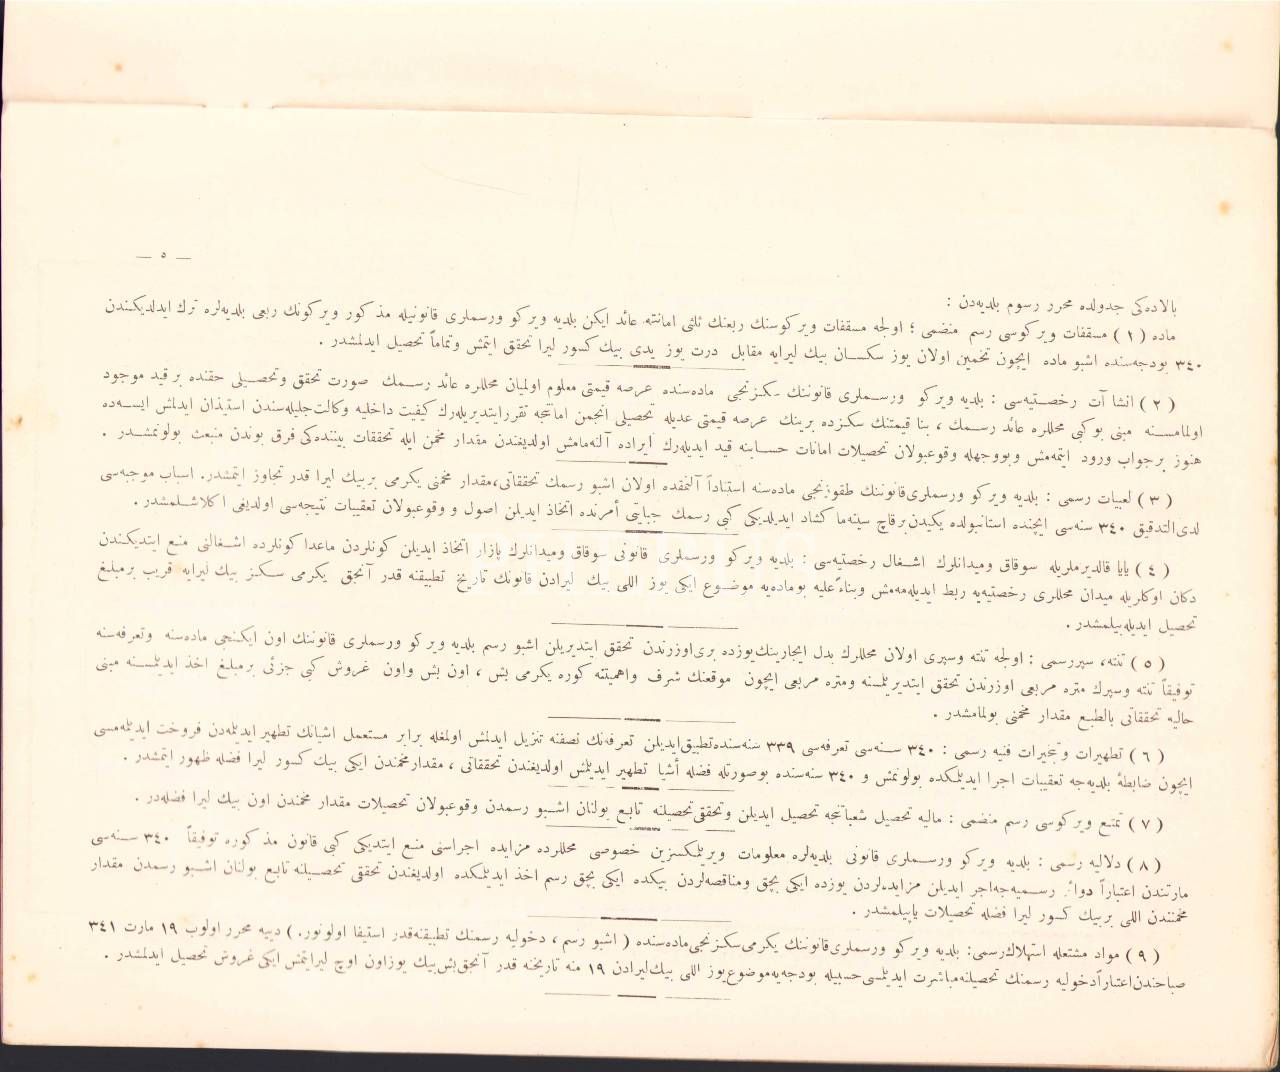 — ٥ —
بالاده‌كی جدولده محرر رسوم بلدیه‌دن :
ماده ( ١ ) مسقفات ویركوسی رسم منضمی ؛ اولجه مسقفات ویركوسنك ربعنك ثلثی امانته عائد ایكن بلدیه ویركو ورسملری قانونیله مذكور ویركونك ربعی بلدیه‌لره ترك ایدلدیكندن
٣٤٠ بودجه‌سنده اشبو ماده ایچون تخمین اولان یوز سكسان بیك لیرایه مقابل درت یوز یدی بیك كسور لیرا تحقق ایتمش وتماماً تحصیل ایدلمشدر .
( ٢ ) انشاآت رخصتیه‌سی : بلدیه ویركو ورسملری قانوننك سكزنجی ماده‌سنده عرصه قیمتی معلوم اولمیان محللره عائد رسمك صورت تحقق وتحصیلی حقنده بر قید موجود
اولمامسنه مبنی بوكبی محللره عائد رسمك ، بنا قیمتنك سكزده برینك عرصه قیمتی عدیله تحصیلی انجمن امانتجه تقرر ایتدیریله‌رك كیفیت داخلیه وكالت جلیله‌سندن استیذان ایدلمش ایسه‌ده
هنوز بر جواب ورود ایتمه‌مش وبووجهله وقوعبولان تحصیلات امانات حسابنه قید ایدیله‌رك ایراده آلنه‌مامش اولدیغندن مقدار مخمن ایله تحققات بیننده‌كی فرق بوندن منبعث بولونمشدر .
( ٣ ) لعبیات رسمی : بلدیه ویركو ورسملری قانوننك طقوزنجی ماده‌سنه استناداً آلنمقده اولان اشبو رسمك تحققاتی، مقدار مخمنی یكرمی بر بیك لیرا قدر تجاوز ایتمشدر. اسباب موجبه‌سی
لدی‌التدقیق ٣٤٠ سنه‌سی ایچنده استانبولده یكیدن بر قاچ سینه‌ما كشاد ایدلدیكی كبی رسمك جبایتی أمرنده اتخاذ ایدیلن اصول و وقوعبولان تعقیبات نتیجه‌سی اولدیغی اكلاشلمشدر .
( ٤ ) یایا قالدیرملریله سوقاق ومیدانلرك اشغال رخصتیه‌سی : بلدیه ویركو ورسملری قانونی سوقاق ومیدانلرك پازار اتخاذ ایدیلن كونلردن ماعدا كونلرده اشغالنی منع ایتدیكندن
دكان اوكلریله میدان محللری رخصتیه‌یه ربط ایدیله‌مه‌مش وبناءً علیه بوماده‌یه موضوع ایكی یوز اللی بیك لیرادن قانونك تاریخ تطبیقنه قدر آنجق یكرمی سكز بیك لیرایه قریب بر مبلغ
تحصیل ایدیله‌بیلمشدر .
( ٥ ) تنته، سپررسمی : اولجه تنته وسپری اولان محللرك بدل ایجارینك یوزده بری اوزرندن تحقق ایتدیریلن اشبو رسم بلدیه ویركو ورسملری قانوننك اون ایكنجی ماده‌سنه وتعرفه‌سنه
توفیقاً تنته وسپرك متره مربعی اوزرندن تحقق ایتدیریلمسنه ومتره مربعی ایچون موقعنك شرف واهمیتنه كوره یكرمی بش ، اون بش واون غروش كبی جزئی بر مبلغ اخذ ایدیلمسنه مبنی
حالیه تحققاتی بالطبع مقدار مخمنی بولمامشدر .
( ٦ ) تطهیرات وتبخیرات فنیه رسمی : ٣٤٠ سنه‌سی تعرفه‌سی ٣٣٩ سنه‌سنده تطبیق ایدیلن تعرفه‌نك نصفنه تنزیل ایدلمش اولمغله برابر مستعمل اشیانك تطهیر ایدیلمه‌دن فروخت ایدیلمه‌مسی
ایچون ضابطۀ بلدیه‌جه تعقیبات اجرا ایدیلمكده بولونمش و ٣٤٠ سنه‌سنده بوصورتله فضله أشیا تطهیر ایدیلمش اولدیغندن تحققاتی ، مقدار مخمندن ایكی بیك كسور لیرا فضله ظهور ایتمشدر .
( ٧ ) تمتع ویركوسی رسم منضمی : مالیه تحصیل شعباتنجه تحصیل ایدیلن وتحققی تحصیلنه تابع بولنان اشبو رسمدن وقوعبولان تحصیلات مقدار مخمندن اون بیك لیرا فضله‌در .
( ٨ ) دلالیه رسمی : بلدیه ویركو ورسملری قانونی بلدیه‌لره معلومات ویریلمكسزین خصوصی محللرده مزایده اجراسنی منع ایتدیكی كبی قانون مذكوره توفیقاً ٣٤٠ سنه‌سی
مارتندن اعتباراً دوائر رسمیه‌جه اجرا ایدیلن مزایده‌لردن یوزده ایكی بچق ومناقصه‌لردن بیكده ایكی بچق رسم اخذ ایدیلمكده اولدیغندن تحققی تحصیلنه تابع بولنان اشبو رسمدن مقدار
مخمنندن اللی بر بیك كسور لیرا فضله تحصیلات یاپیلمشدر .
( ٩ ) مواد مشتعله استهلاك رسمی: بلدیه ویركو ورسملری قانوننك یكرمی سكزنجی ماده‌سنده ( اشبو رسم ، دخولیه رسمنك تطبیقنه قدر استیفا اولونور. ) دییه محرر اولوب ١٩ مارت ٣٤١
صباحندن اعتباراً دخولیه رسمنك تحصیلنه مباشرت ایدیلمسی حسبیله بودجه‌یه موضوع یوز اللی بیك لیرادن ١٩ منه تاریخنه قدر آنجق بش بیك یوز اون اوچ لیرا یتمش ایكی غروش تحصیل ایدلمشدر .